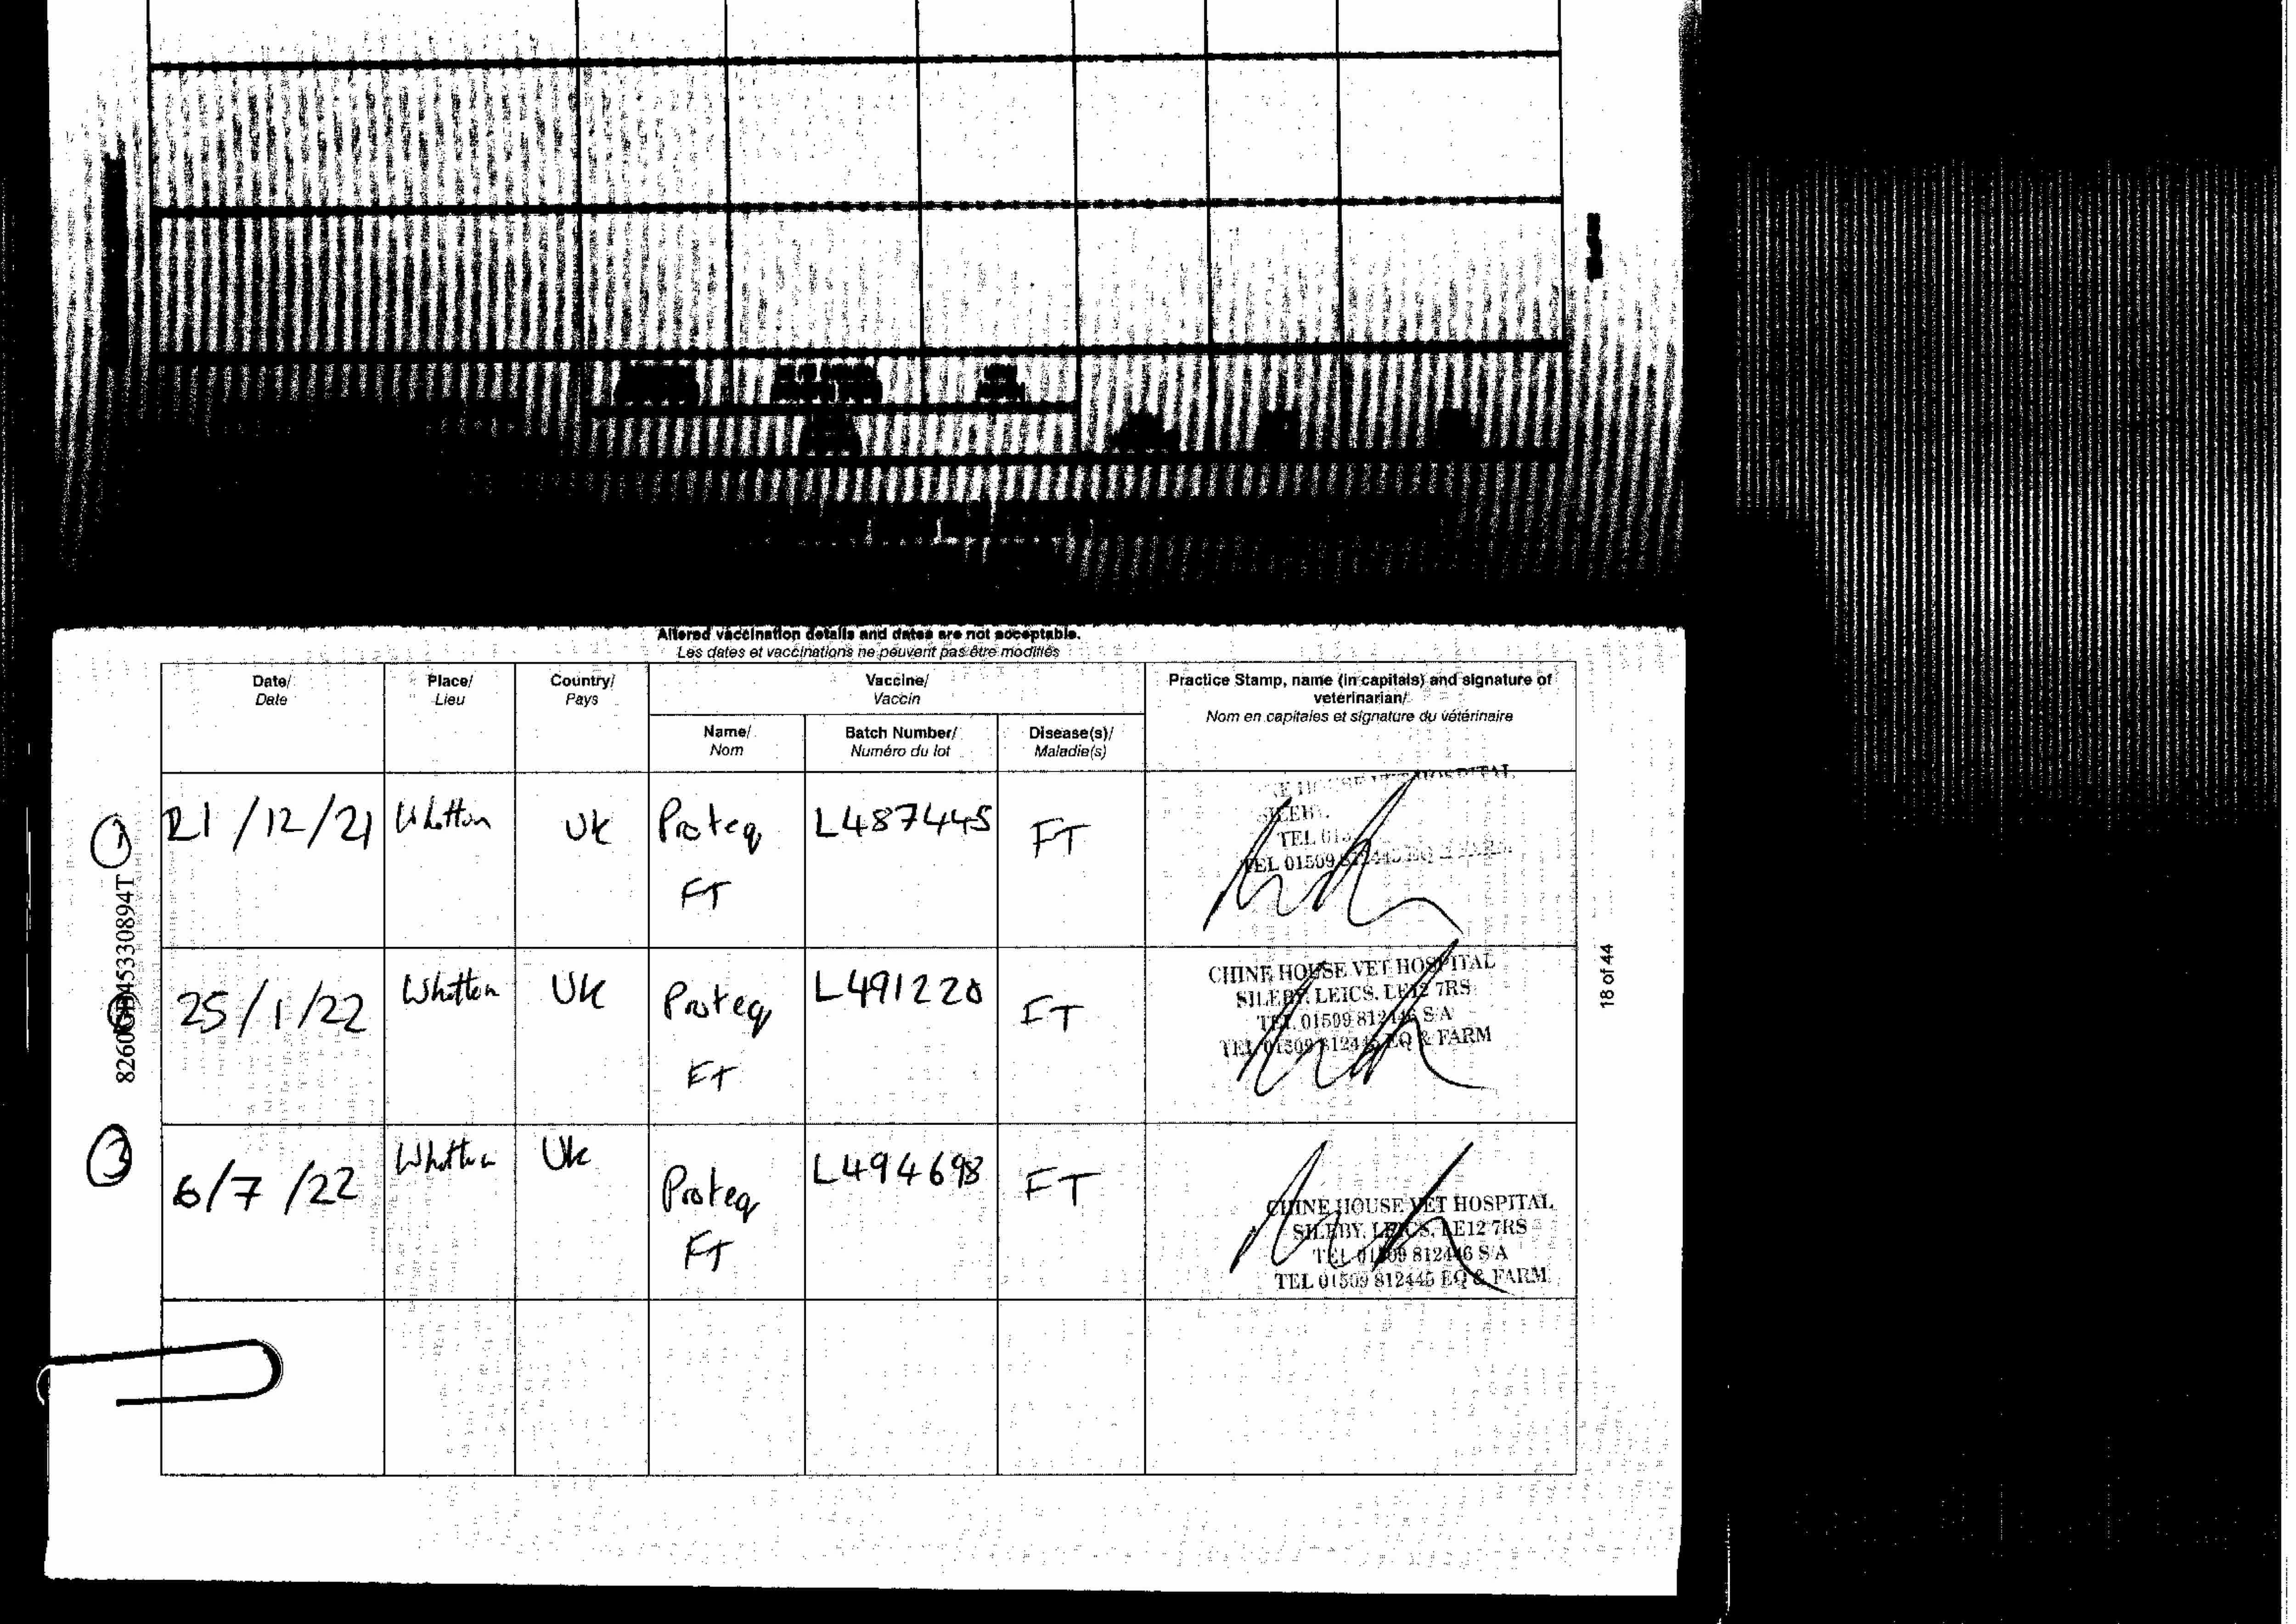 Altered vaccination details and dates are not acceptable.
Les dates et vaccinations ne peuvent pas être modifiés
Date/ Place/ Country/ Vaccine/ Practice Stamp, name (in capitals) and signature of
Date Lieu Pays Vaccin veterinarian/
Nom en capitales et signature du vétérinaire
Name/ Batch Number/ Disease(s)/
Nom Numéro du lot Maladie(s)
1 21/12/21 Whatton UK Proteq L487445 FT
FT
TEL 01509
2 25/1/22 Whatton UK Proteq L491220 FT
FT
CHINE HOUSE VET HOSPITAL
SILEBY, LEICS. LE12 7RS
TEL 01509 812446 S/A
TEL 01509 812445 EQ & FARM
3 6/7/22 Whatton UK Proteq L494698 FT
FT
CHINE HOUSE VET HOSPITAL
SILEBY, LEICS, LE12 7RS
TEL 01509 812446 S/A
TEL 01509 812445 EQ & FARM
18 of 44